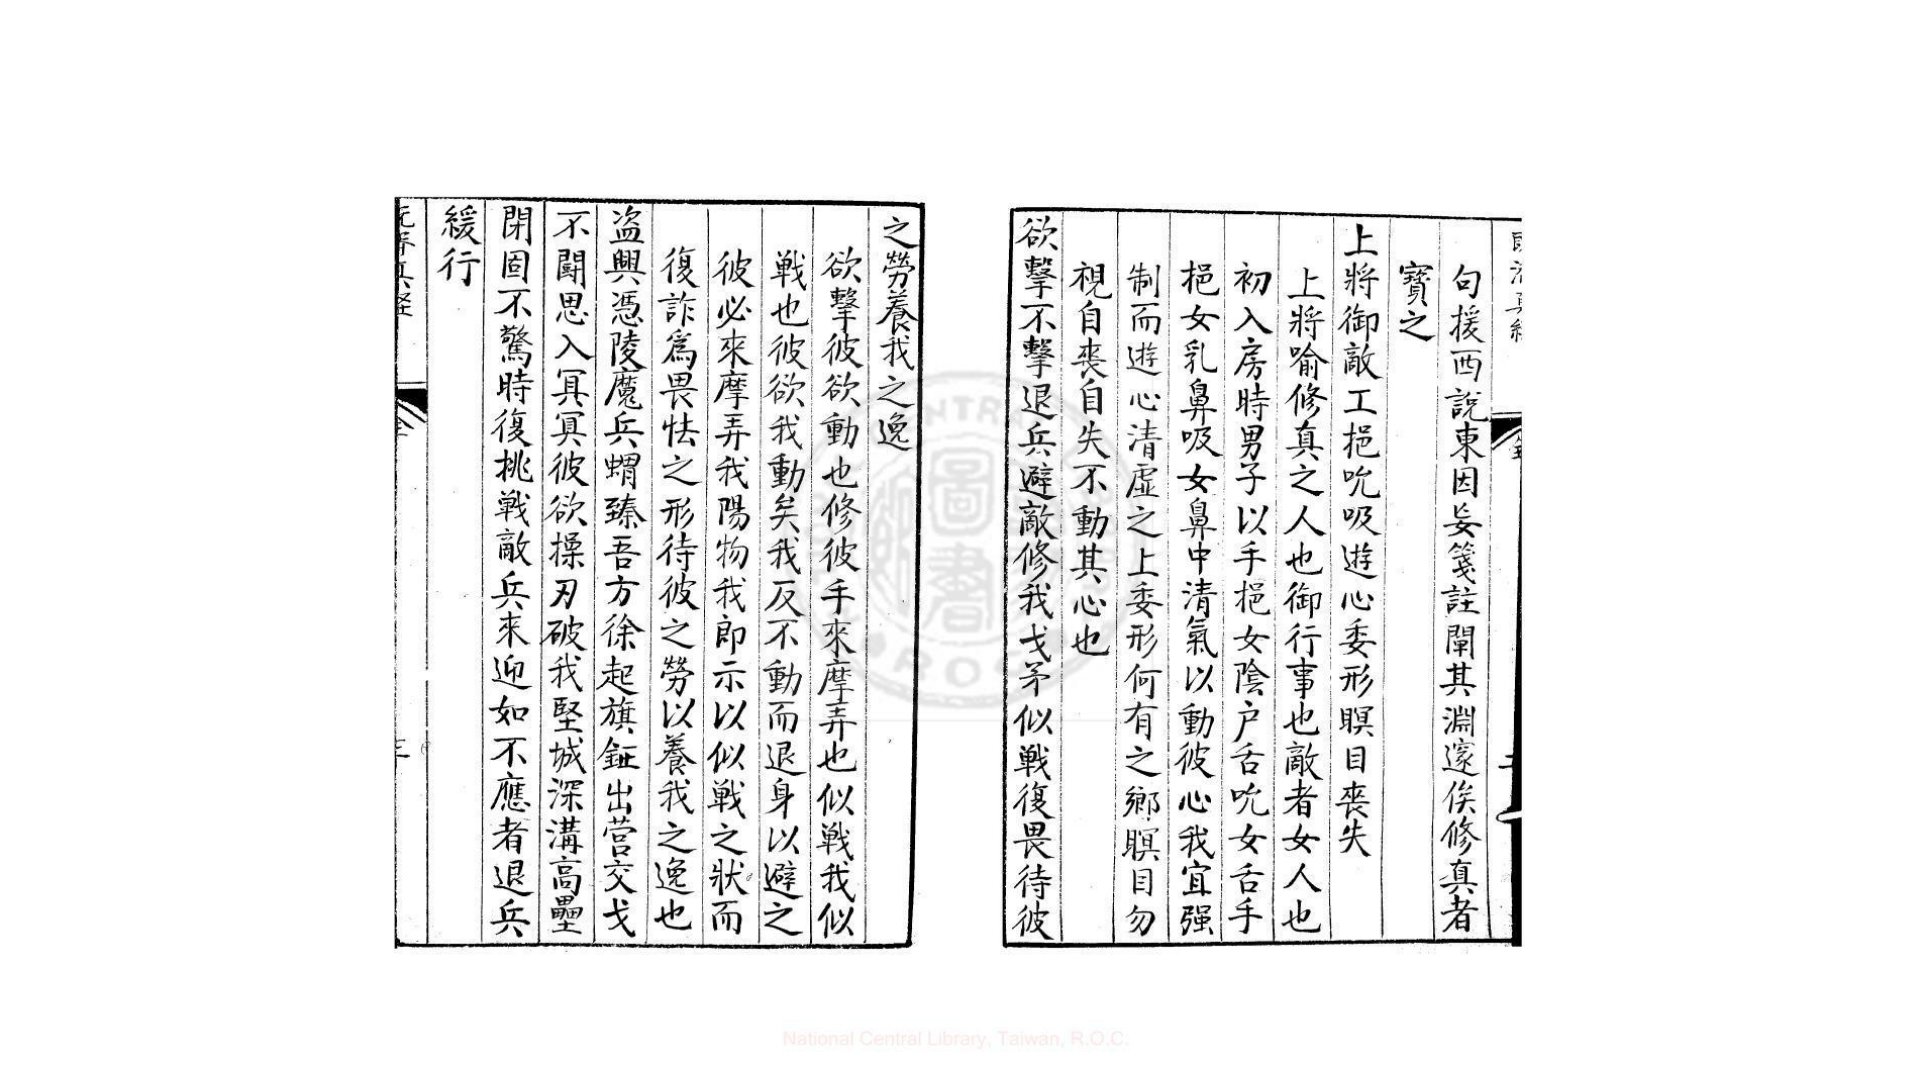 句援西說東因妄箋註闡其淵邃俟修真者
寶之
上將御敵工挹吮吸遊心委形瞑目喪失
上將喻修真之人也御行事也敵者女人也
初入房時男子以手挹女陰户舌吮女舌手
挹女乳鼻吸女鼻中清氣以動彼心我宜强
制而遊心清虛之上委形何有之鄉瞑目勿
視自喪自失不動其心也
欲擊不擊退兵避敵修我戈矛似戰復畏待彼
之勞養我之逸
欲擊彼欲動也修彼手來摩弄也似戰我似
戰也彼欲我動矣我反不動而退身以避之
彼必來摩弄我陽物我即示以似戰之狀而
復詐爲畏怯之形待彼之勞以養我之逸也
盗興憑陵魔兵蝟臻吾方徐起旗鉦出營交戈
不鬬思入冥冥彼欲操刃破我堅城深溝高壘
閉固不驚時復挑戰敵兵來迎如不應者退兵
緩行
National Central Library, Taiwan, R.O.C.